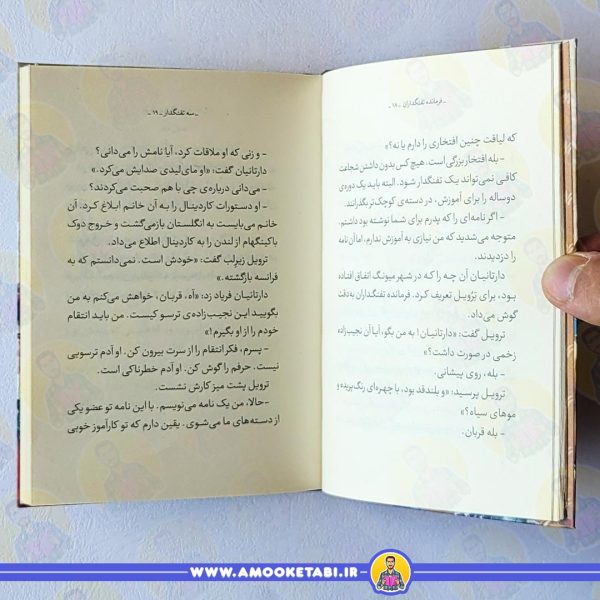 ـ فرمانده تفنگداران ـ ۱۸ ـ
که لیاقت چنین افتخاری را دارم یا نه؟»
- بله افتخار بزرگی است. هیچ کس بدون داشتن شجاعت
کافی نمی‌تواند یک تفنگدار شود. البته باید یک دوره‌ی
دوساله را برای آموزش، در دسته‌ی کوچک‌تر بگذرانند.
- اگر نامه‌ای را که پدرم برای شما نوشته بود داشتم،
متوجه می‌شدید که من نیازی به آموزش ندارم، اما آن نامه
را دزدیدند.
دارتانیان آن چه را که در شهر میونگ اتفاق افتاده
بود، برای تِرُویل تعریف کرد. فرمانده تفنگداران به‌دقت
گوش می‌داد.
ترویل گفت: «دارتانیان! به من بگو، آیا آن نجیب‌زاده
زخمی در صورت داشت؟»
- بله، روی پیشانی.
ترویل پرسید: «و بلندقد بود، با چهره‌ای رنگ‌پریده و
موهای سیاه؟»
- بله قربان.
ـ سه تفنگدار ـ ۱۹ ـ
- و زنی که او ملاقات کرد، آیا نامش را می‌دانی؟
دارتانیان گفت: «او مای‌لیدی صدایش می‌کرد.»
- می‌دانی درباره‌ی چی با هم صحبت می‌کردند؟
- او دستورات کاردینال را به آن خانم ابلاغ کرد. آن
خانم می‌بایست به انگلستان بازمی‌گشت و خروج دوک
باکینگهام از لندن را به کاردینال اطلاع می‌داد.
ترویل زیرلب گفت: «خودش است. نمی‌دانستم که به
فرانسه بازگشته.»
دارتانیان فریاد زد: «آه، قربان، خواهش می‌کنم به من
بگویید این نجیب‌زاده‌ی ترسو کیست. من باید انتقام
خودم را از او بگیرم!»
- پسرم، فکر انتقام را از سرت بیرون کن. او آدم ترسویی
نیست. حرفم را گوش کن. او آدم خطرناکی است.
ترویل پشت میز کارش نشست.
- حالا، من یک نامه می‌نویسم. با این نامه تو عضو یکی
از دسته‌های ما می‌شوی. یقین دارم که تو کارآموز خوبی
WWW.AMOOKETABI.IR